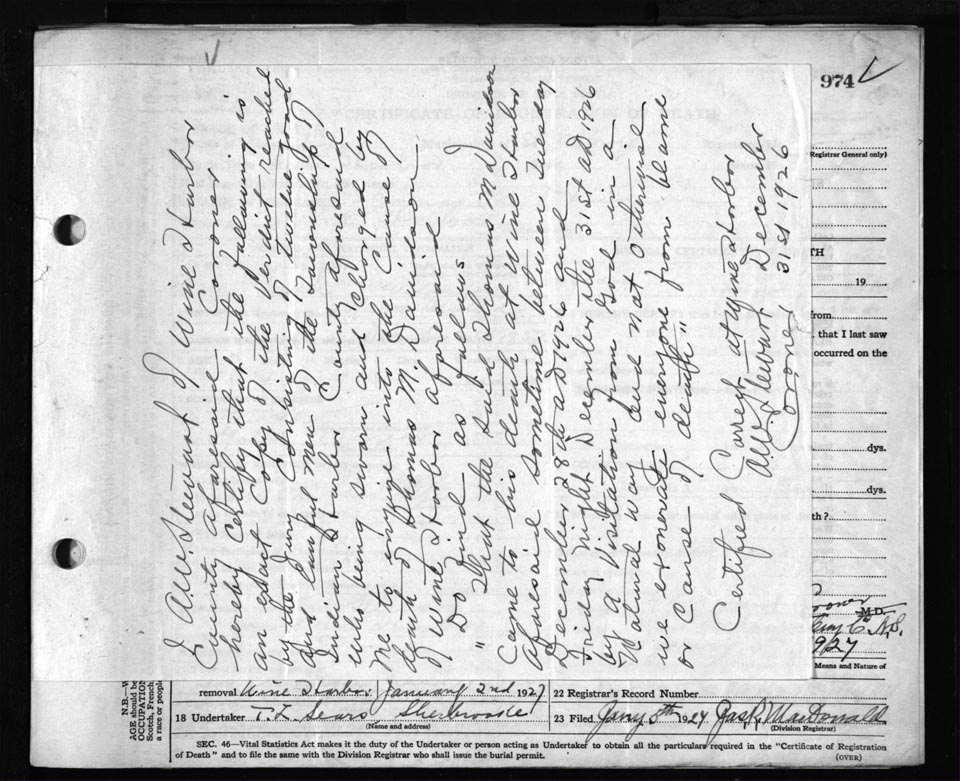 974
I AW. Stewart of Wine Harbor
County aforesaid Coroner
hereby certify that the following is
an exact copy of the Verdict reached
by the Jury Consisting of twelve good
and lawful men of the Township of
Indian Harbor County aforesaid
who being sworn and charged by
me to inquire into the cause of
death of Thomas M. Davidson
of Wine Harbor aforesaid
Do find as follows
" That the said Thomas M Davidson
Came to his death at Wine Harbor
Aforesaid sometime between Tuesday
December 28th AD 1926 and
Friday night December the 31st AD 1926
by A Visitation from God in a
Natural way and not otherwise
we exonerate everyone from blame
or Cause of death "
Certified Correct at Wine Harbor
AW Stewart December
Coroner 31st 1926
Registrar General only)
TH
19
from
, that I last saw
occurred on the
dys.
dys.
th?
M.D.
N.S.
9/27
Means and Nature of
N.B.—W
AGE should be
OCCUPATION
Scotch, French
a race or people
removal Wine Harbor January 2nd 1927
22 Registrar's Record Number
18 Undertaker T. L. Sears Sherbrooke
(Name and address)
23 Filed Jany 5th 1927 Jas R. MacDonald
(Division Registrar)
SEC. 46—Vital Statistics Act makes it the duty of the Undertaker or person acting as Undertaker to obtain all the particulars required in the "Certificate of Registration
of Death" and to file the same with the Division Registrar who shall issue the burial permit.
(OVER)